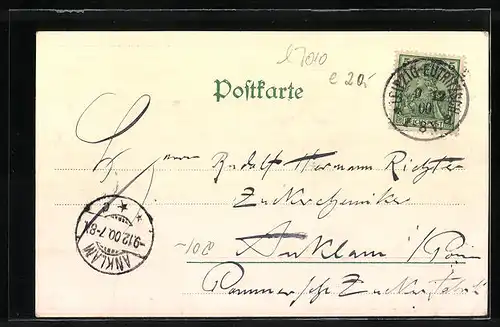 L7010
e 20,-
Postkarte
LEIPZIG-EUTRITZSCH
9 12
00
Herrn Rudolf Hermann Richter
Zuckerchemiker
ANKLAM
9.12.00.7-8
Anklam i/Pom
Pommersche Zuckerfabrik